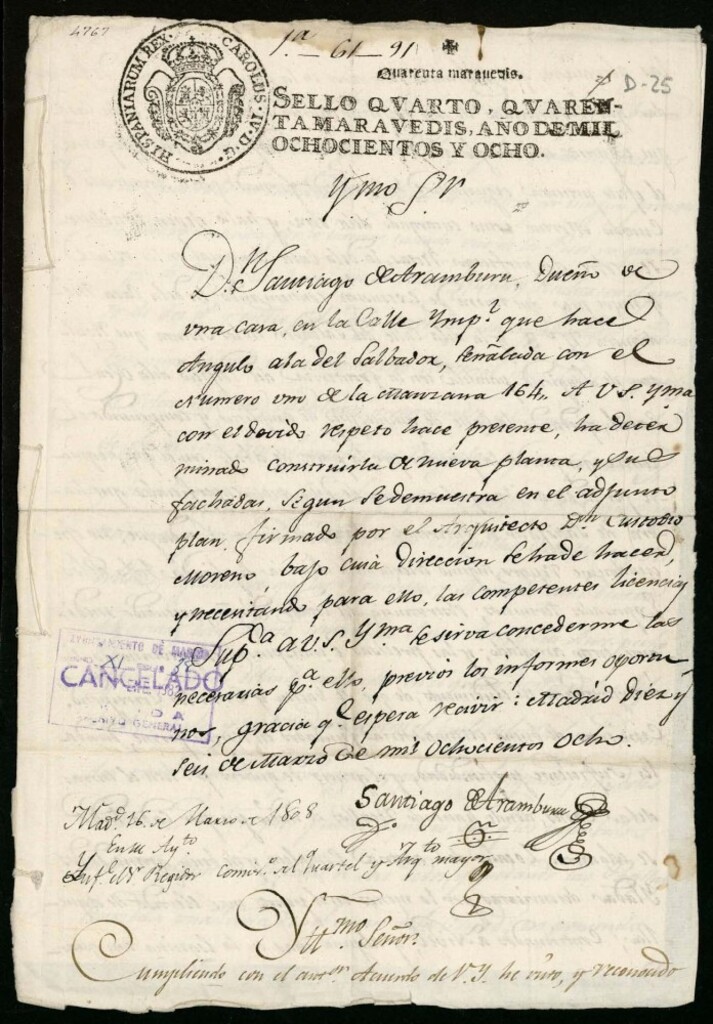 4767
1ª - 61 - 91
D-25
HISPANIARUM REX. CAROLUS. IV. D. G.
Quarenta marauedis.
SELLO QVARTO, QVAREN-
TAMARAVEDIS, AÑO DE MIL
OCHOCIENTOS Y OCHO.
Ymo Sr
Dn. Santiago de Aramburu, Dueño de
vna casa, en la Calle Ympl. que hace
Angulo ala del Salbador, señalada con el
Numero vno de la Manzana 164,, A V.S. Yma
con el devido respeto hace presente, ha deter
minado construirla de nueva planta, y sus
fachadas, segun se demuestra en el adjunto
plan, firmado por el Arquitecto Dn. Custodio
Moreno, bajo cuia direccion se ha de hacer,
y necesitando para ello, las competentes licencias
Supca. a V.S. Yma. se sirva concederme las
necesarias pa. ello, previos los informes oportu-
nos, gracia qe espera recivir: Madrid Diez y
seis de Marzo de mil ochocientos ocho.
AYUNTAMIENTO DE MADRID
CANCELADO
ARCHIVO GENERAL
Santiago de Aramburu
Madd. 16 de Marzo de 1808
En su Aytto.
Ynfe. el Sr. Regidor Comisro. del Quartel y Arqto mayor
Yltmo. Señor
Cumpliendo con el antor. Acuerdo de V.Y. he visto, y reconocido